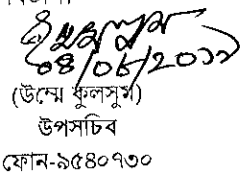 ০৪/০৮/২০১৯
(উম্মে কুলসুম)
উপসচিব
ফোন-৯৫৪০৭৩০